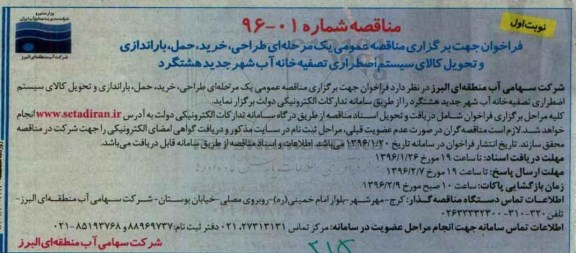 نوبت اول
مناقصه شماره ۰۱-۹۶
فراخوان جهت برگزاری مناقصه عمومی یک مرحله‌ای طراحی، خرید، حمل، باراندازی
و تحویل کالای سیستم اضطراری تصفیه‌خانه آب شهر جدید هشتگرد
شرکت سهامی آب منطقه‌ای البرز
شرکت سهامی آب منطقه‌ای البرز در نظر دارد فراخوان جهت برگزاری مناقصه عمومی یک مرحله‌ای طراحی، خرید، حمل، باراندازی و تحویل کالای سیستم
اضطراری تصفیه خانه آب شهر جدید هشتگرد را از طریق سامانه تدارکات الکترونیکی دولت برگزار نماید.
کلیه مراحل برگزاری فراخوان شامل دریافت و تحویل اسناد مناقصه از طریق درگاه سامانه تدارکات الکترونیکی دولت به آدرس www.setadiran.ir انجام
خواهد شد. لازم است مناقصه گران در صورت عدم عضویت قبلی، مراحل ثبت نام در سایت مذکور و دریافت گواهی امضای الکترونیکی را جهت شرکت در مناقصه
محقق سازند. تاریخ انتشار فراخوان در سامانه تاریخ ۱۳۹۶/۱/۲۰ می‌باشد. اطلاعات و اسناد مناقصه از طریق سامانه قابل دریافت می‌باشد.
مهلت دریافت اسناد: تا ساعت ۱۹ مورخ ۱۳۹۶/۱/۲۶
مهلت ارسال پاسخ: تا ساعت ۱۹ مورخ ۱۳۹۶/۲/۷
زمان بازگشایی پاکات: ساعت ۱۰ صبح مورخ ۱۳۹۶/۲/۹
اطلاعات تماس دستگاه مناقصه گذار: کرج-مهرشهر-بلوار امام خمینی(ره)-روبروی مصلی-خیابان بوستان-شرکت سهامی آب منطقه‌ای البرز-
تلفن ۳۲۰-۳۱۰-۰۲۶۳۳۳۳۲۳۰۰
اطلاعات تماس سامانه جهت انجام مراحل عضویت در سامانه: مرکز تماس ۲۷۳۱۳۱۳۱-۰۲۱ دفتر ثبت نام: ۸۸۹۶۹۷۳۷ و ۸۵۱۹۳۷۶۸-۰۲۱
شرکت سهامی آب منطقه‌ای البرز